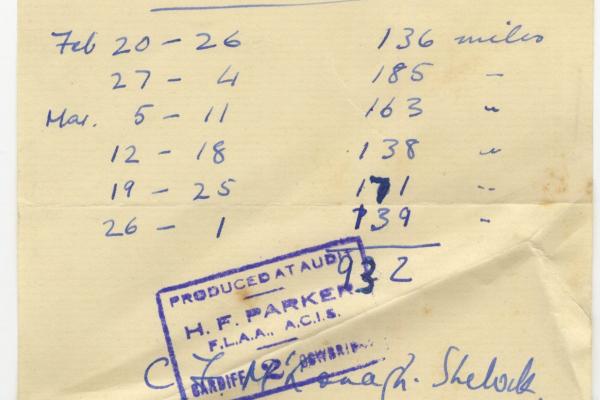 Feb 20 - 26 136 miles
27 - 4 185 -
Mar. 5 - 11 163 "
12 - 18 138 "
19 - 25 171 "
26 - 1 139 "
932
PRODUCED AT AUDIT
H. F. PARKER
F.L.A.A., A.C.I.S.
CARDIFF
C